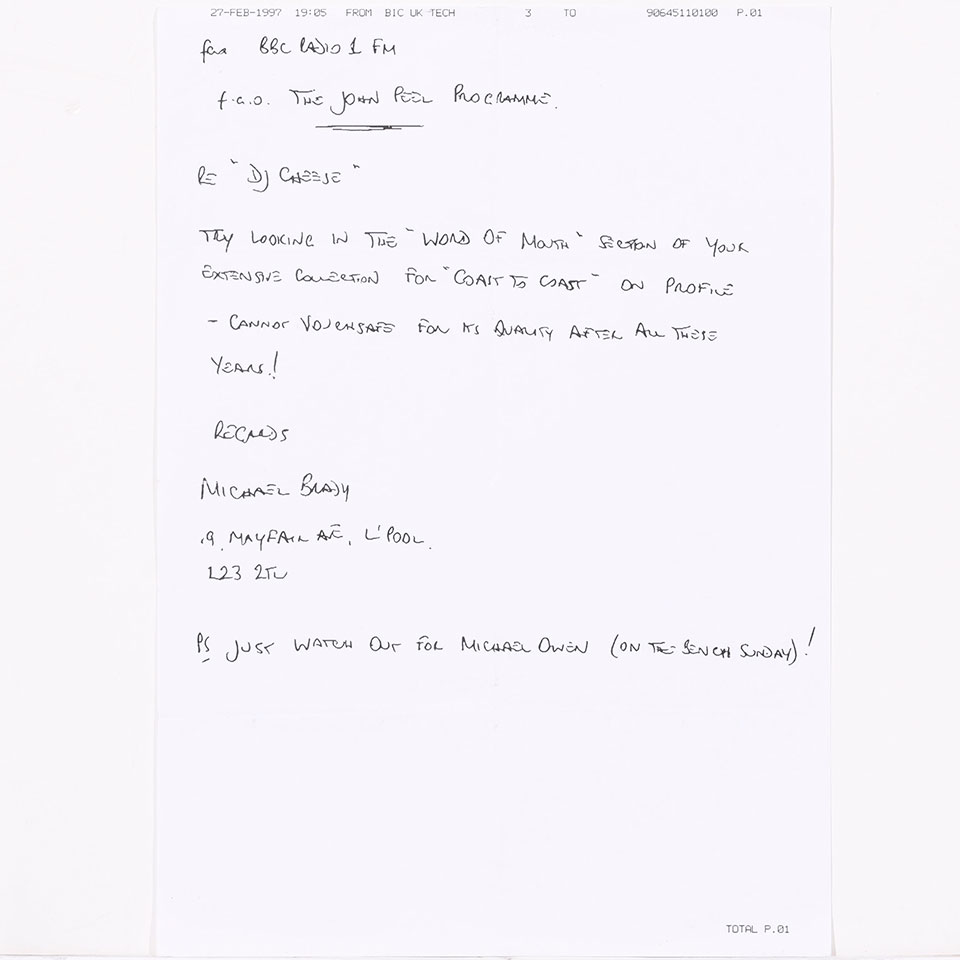 27-FEB-1997 19:05 FROM BIC UK TECH 3 TO 90645110100 P.01
fax BBC RADIO 1 FM
f.a.o. THE JOHN PEEL PROGRAMME.
RE "DJ CHEESE"
TRY LOOKING IN THE "WORD OF MOUTH" SECTION OF YOUR
EXTENSIVE COLLECTION FOR "COAST TO COAST" ON PROFILE
- CANNOT VOUCHSAFE FOR ITS QUALITY AFTER ALL THESE
YEARS!
REGARDS
MICHAEL BRADY
9 MAYFAIR AVE, L'POOL.
L23 2TL
PS JUST WATCH OUT FOR MICHAEL OWEN (ON THE BENCH SUNDAY)!
TOTAL P.01